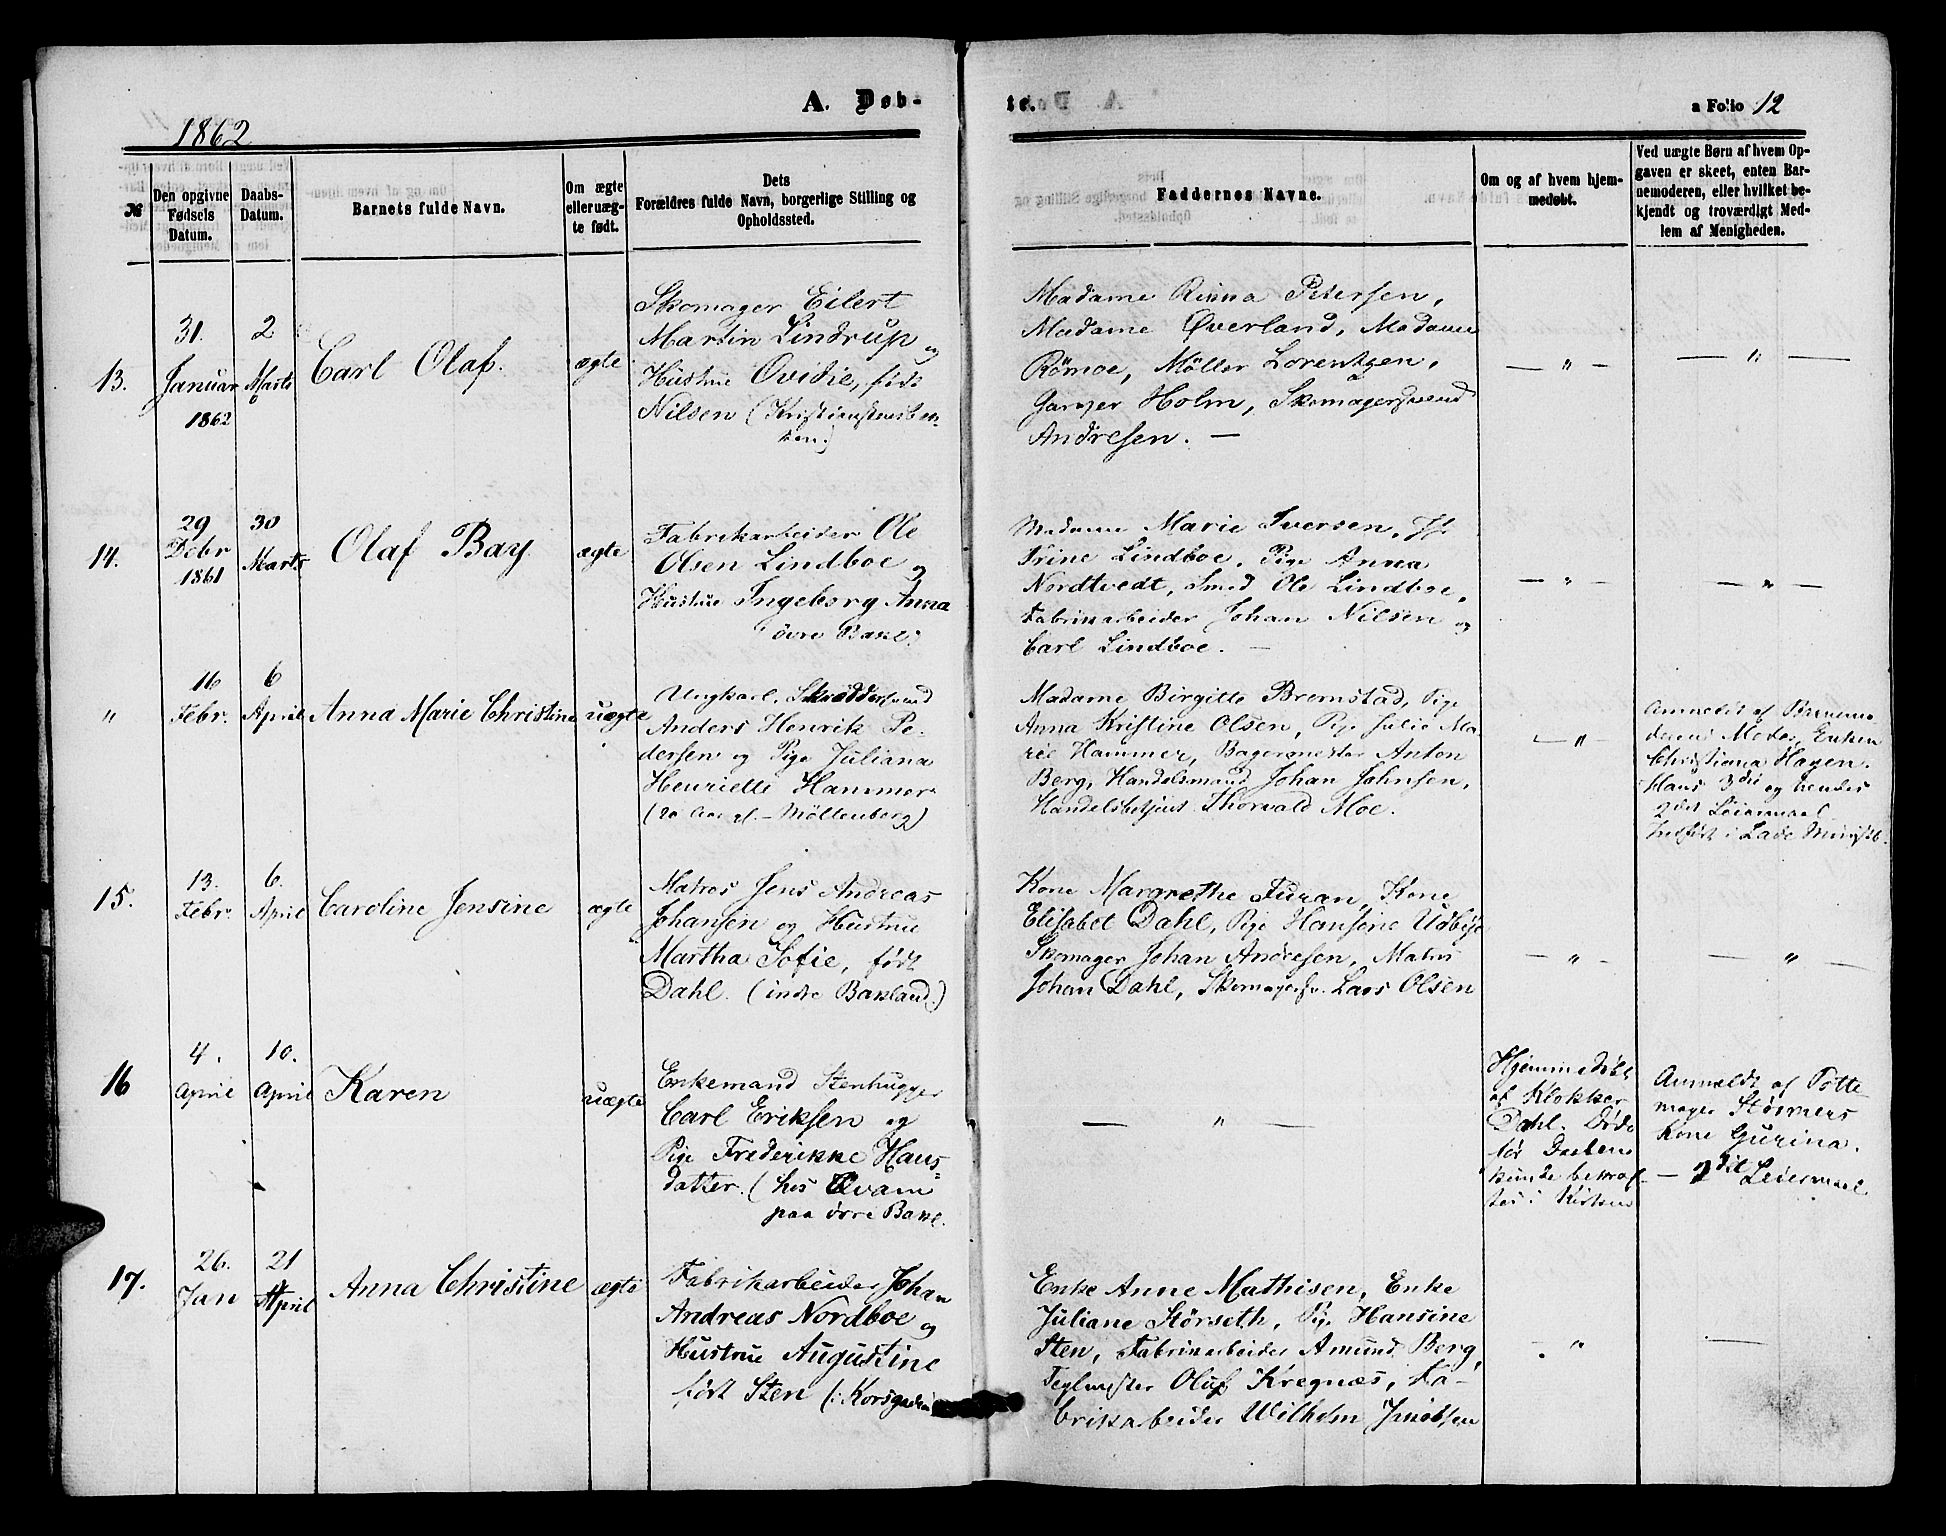 A. Døb-
te.
a Folio 12
1862
№
Den opgivne
Fødsels
Datum.
Daabs-
Datum.
Barnets fulde Navn.
Om ægte
eller uæg-
te født.
Dets
Forældres fulde Navn, borgerlige Stilling og
Opholdssted.
Faddernes Navne.
Om og af hvem hjem-
medøbt.
Ved uægte Børn af hvem Op-
gaven er skeet, enten Bar-
nemoderen, eller hvilket be-
kjendt og troværdigt Med-
lem af Menigheden.
13.
31.
Januar
1862
2
Marts
Carl Olaf.
ægte
Skomager Eilert
Martin Lindrup og
Hustrue Ovidie, født
Nilsen (Kristianstensbak-
ken.)
Madame Rinna Petersen,
Madame Øverland, Madame
Rømoe, Møller Lorentzen,
Garver Holm, Skomagersvend
Andresen. —
— " —
— " —
14.
29
Debr
1861
30
Marts
Olaf Bay
ægte
Fabrikarbeider Ole
Olsen Lindboe og
Hustrue Ingeborg Anna
øvre Bakl.
Madame Marie Iversen, Jfr
Trine Lindboe, Pige Anna
Nordtvedt, Smed Ole Lindboe,
Fabrikarbeider Johan Nilsen og
Carl Lindboe. —
— " —
— " —
"
16
Febr.
6
April
Anna Marie Christine
uægte
Ungkarl, Skræddersvend
Anders Henrik Pe-
dersen og Pige Juliana
Henriette Hammer
(20 Aar gl. - Møllenberg)
Madame Birgitte Bremstad, Pige
Anna Kristine Olsen, Pige Julie Ma-
rie Hammer, Bagermester Anton
Berg, Handelsmand Johan Johnsen,
Handelsbetjent Thorvald Moe.
— " —
Anmeldt af Barnemo-
derens Moder, Enken
Christiana Hagen.
Hans 3die og hendes
2det Leiermaal
Indført i Lade Ministb.
15.
13.
Febr.
6.
April
Caroline Jensine
ægte
Matros Jens Andreas
Johansen og Hustrue
Martha Sofie, født
Dahl. (indre Bakland.)
Kone Margrethe Furan, Kone
Elisabet Dahl, Pige Hansine Udbye
Skomager Johan Andresen, Matros
Johan Dahl, Skomagersv. Lars Olsen
— " —
— " —
16
4.
April
10.
April
Karen
uægte
Enkemand Stenhugger
Carl Eriksen og
Pige Frederikke Hans-
datter. (hos Qvam
paa øvre Bakl.
— " —
Hjemmedøbt
af Klokker
Dahl. Døde
før Daaben
kunde bekræf-
tes i Kirken
Anmeldt af Potte-
mager Størmers
Kone Gurina.
— 2det Leiermaal
17.
26.
Jan
21
April
Anna Christine
ægte
Fabrikarbeider Johan
Andreas Nordboe og
Hustrue Augustine
født Sten (: Korsgaden
Enke Anne Mathisen, Enke
Juliane Störseth, Pige Hansine
Sten, Fabrikarbeider Amund Berg,
Teglmester Oluf Kregnæs, Fa-
brikarbeider Wilhelm Jacobsen
. "
—